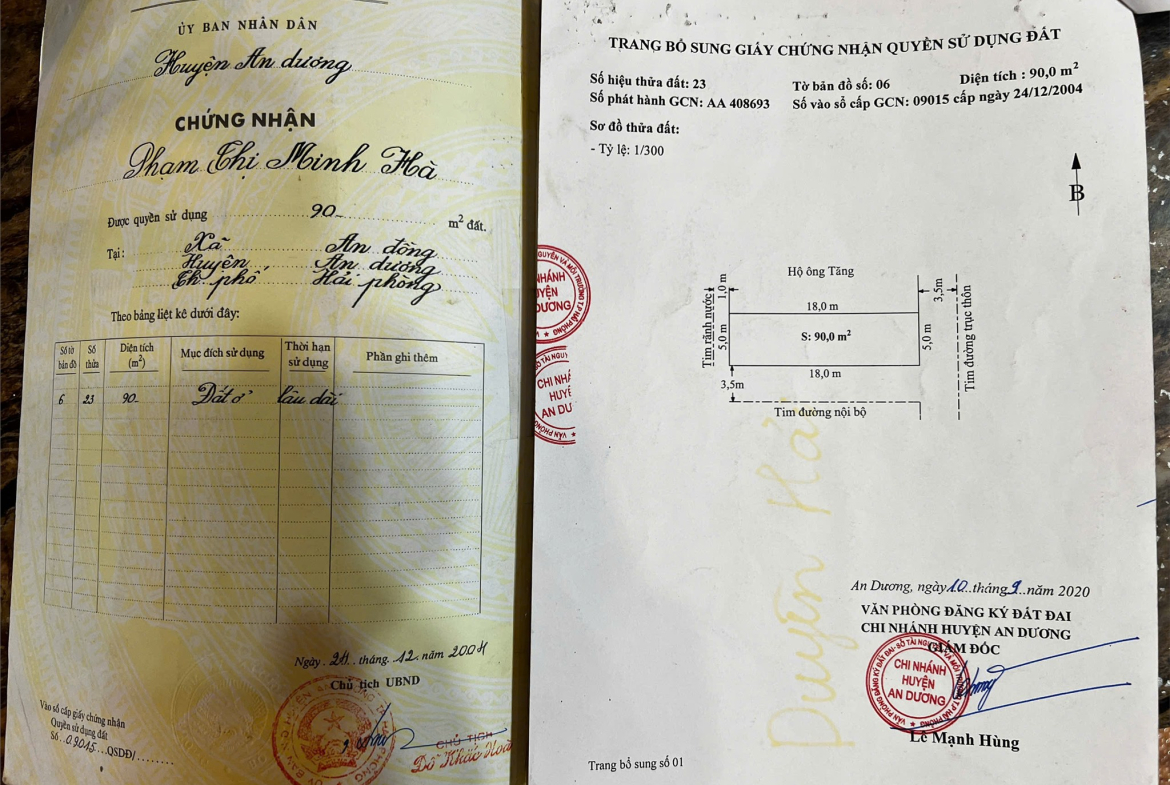 ỦY BAN NHÂN DÂN
Huyện An dương
CHỨNG NHẬN
Phạm Thị Minh Hà
Được quyền sử dụng 90 m² đất.
Tại: Xã An đồng
Huyện An dương
Th phố Hải phòng
Theo bảng liệt kê dưới đây:
Số tờ bản đồ Số thửa Diện tích (m²) Mục đích sử dụng Thời hạn sử dụng Phần ghi thêm
6 23 90 Đất ở lâu dài
Ngày 24 tháng 12 năm 2004
Chủ tịch UBND
CHỦ TỊCH
Đỗ Khắc
Vào sổ cấp giấy chứng nhận
Quyền sử dụng đất
Số 09015 QSDĐ/
TRANG BỔ SUNG GIẤY CHỨNG NHẬN QUYỀN SỬ DỤNG ĐẤT
Số hiệu thửa đất: 23 Tờ bản đồ số: 06 Diện tích : 90,0 m²
Số phát hành GCN: AA 408693 Số vào sổ cấp GCN: 09015 cấp ngày 24/12/2004
Sơ đồ thửa đất:
- Tỷ lệ: 1/300
B
Hộ ông Tăng
1,0 m
3,5m
18,0 m
Tim rãnh nước
5,0 m
S: 90,0 m²
5,0 m
Tim đường trục thôn
18,0 m
3,5m
Tim đường nội bộ
Duyên Hải
CHI NHÁNH
HUYỆN
AN DƯƠNG
An Dương, ngày 10 tháng 9 năm 2020
VĂN PHÒNG ĐĂNG KÝ ĐẤT ĐAI
CHI NHÁNH HUYỆN AN DƯƠNG
GIÁM ĐỐC
CHI NHÁNH
HUYỆN
AN DƯƠNG
Lê Mạnh Hùng
Trang bổ sung số 01